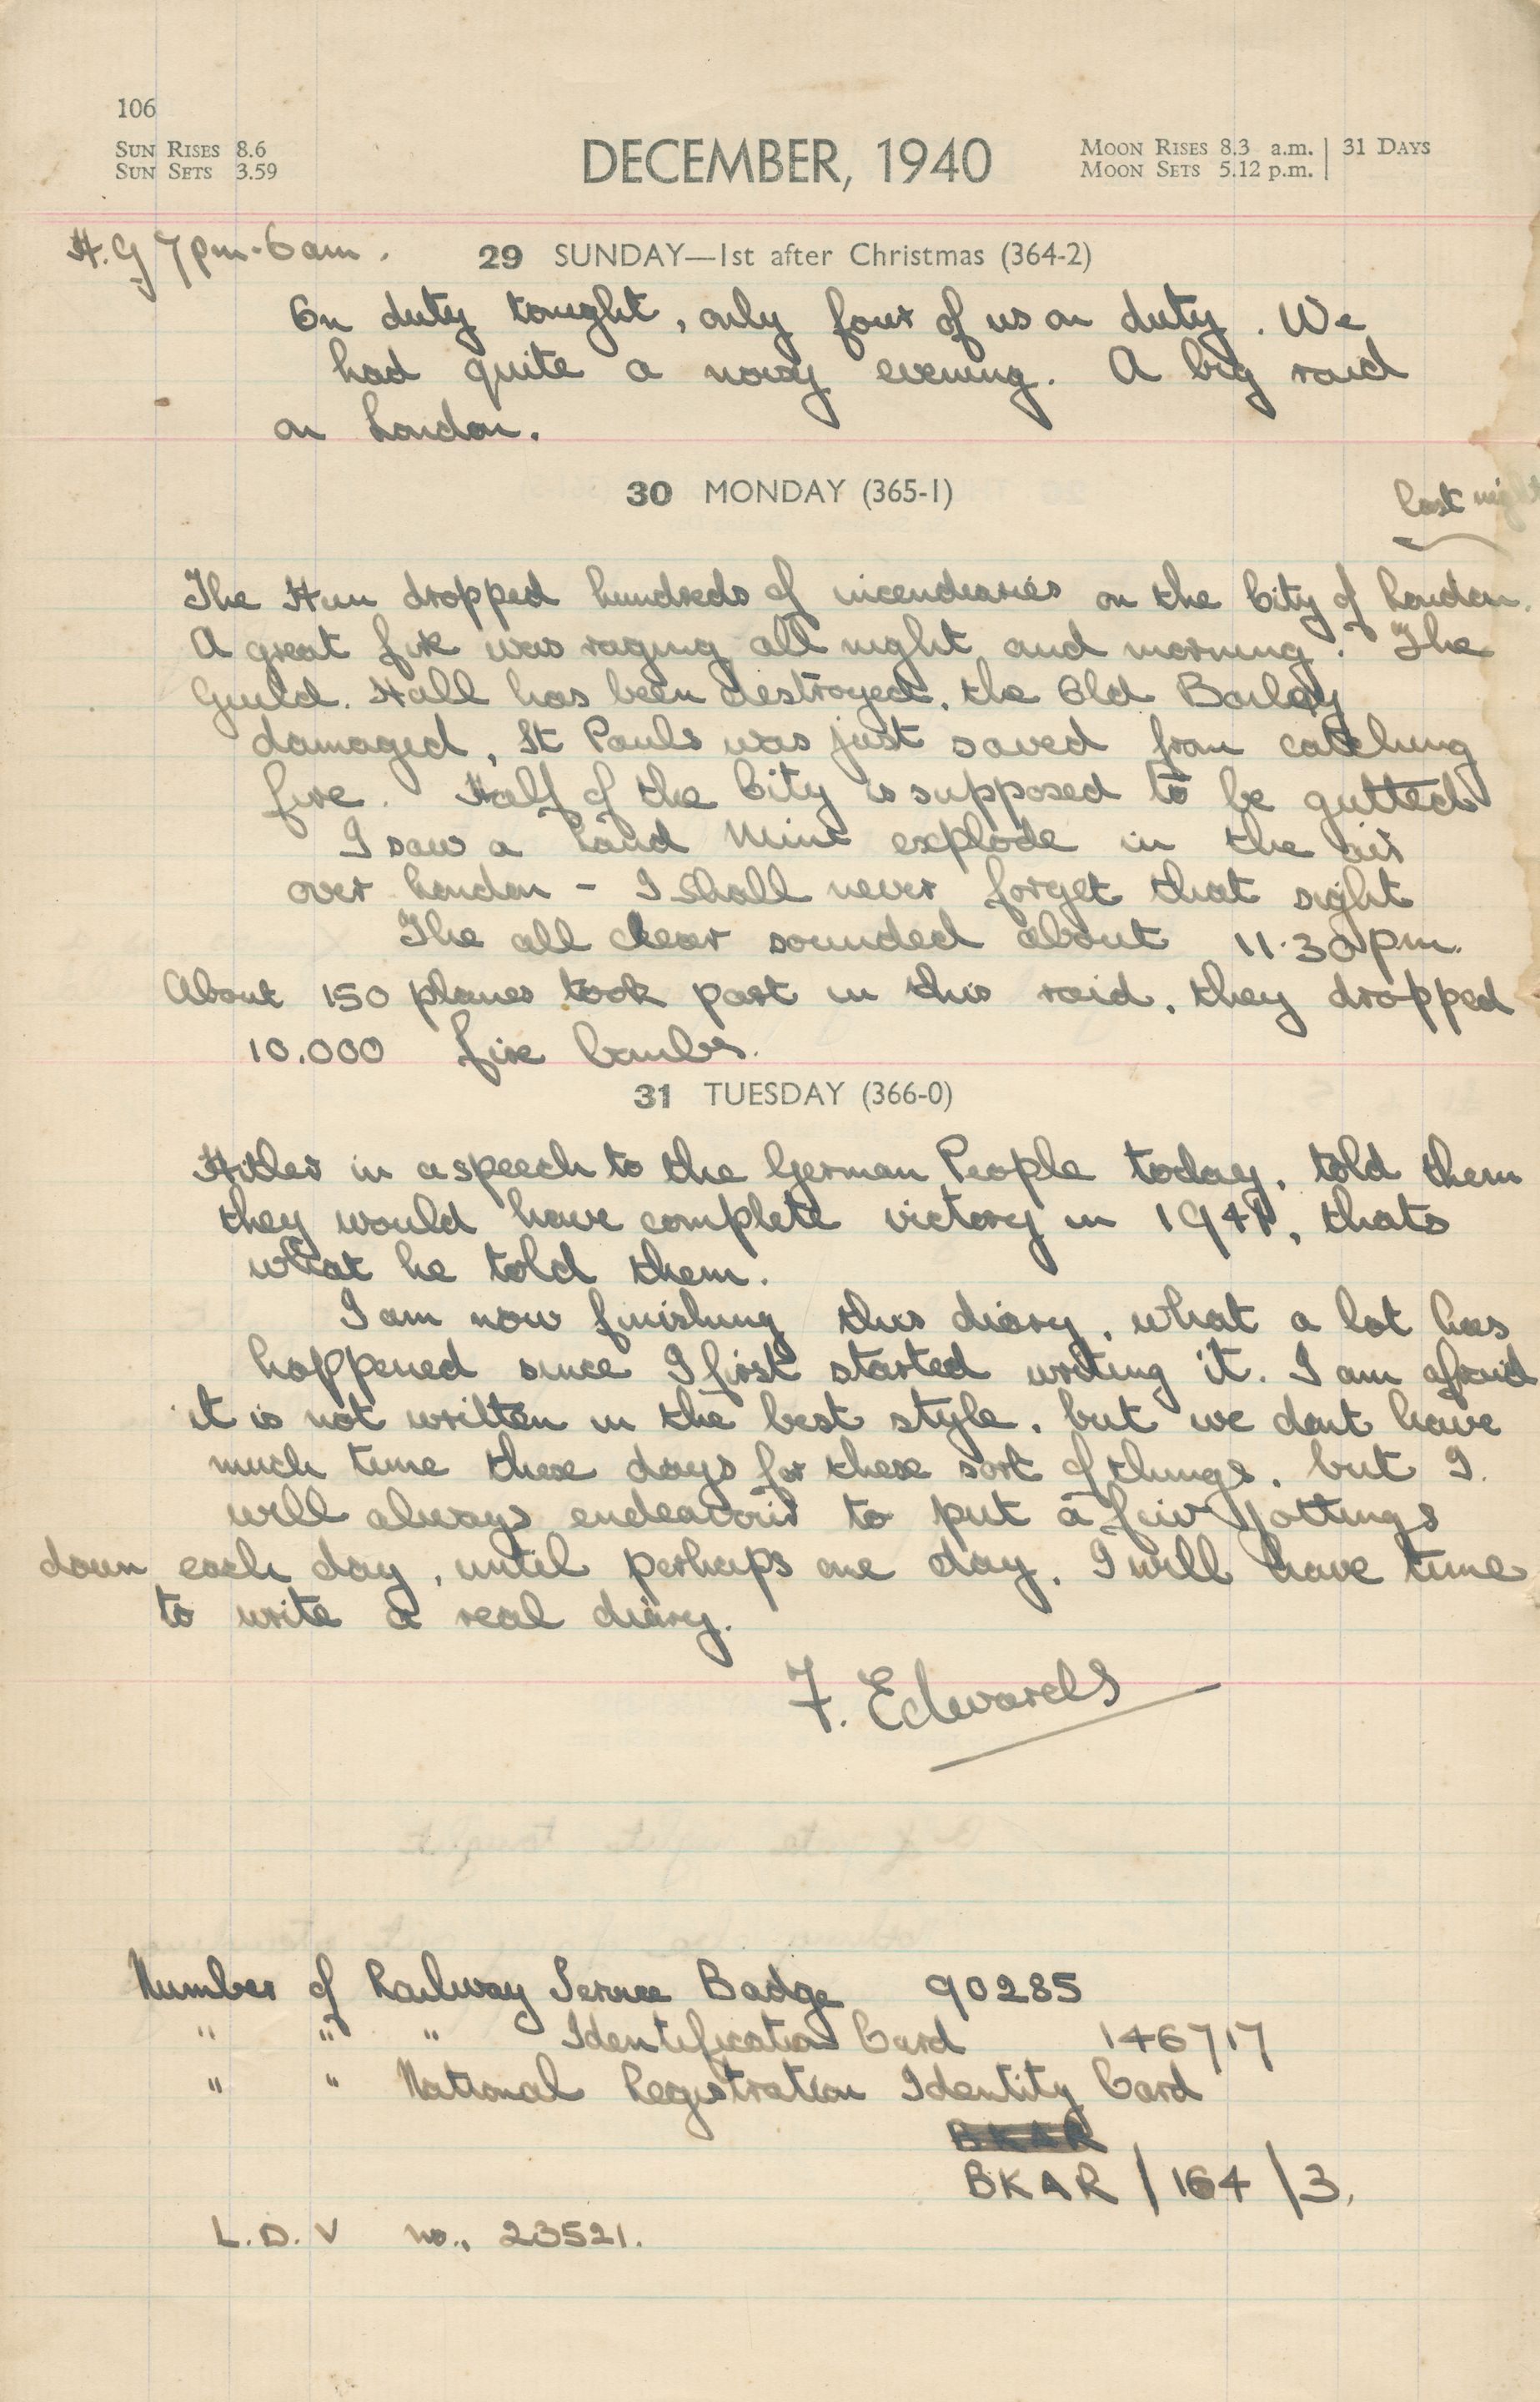 106
SUN RISES 8.6
SUN SETS 3.59
DECEMBER, 1940
MOON RISES 8.3 a.m. | 31 DAYS
MOON SETS 5.12 p.m.
H.G 7pm-6am.
29 SUNDAY—1st after Christmas (364-2)
On duty tonight, only four of us on duty. We
had quite a noisy evening. A big raid
on London.
30 MONDAY (365-1)
last night
The Hun dropped hundreds of incendiaries on the City of London.
A great fire was raging all night and morning. The
Guild. Hall has been destroyed, the Old Bailey
damaged, St Pauls was just saved from catching
fire. Half of the City is supposed to be gutted
I saw a Land Mine explode in the air
over London - I shall never forget that sight
The all clear sounded about 11.30pm.
About 150 planes took part in this raid, they dropped
10.000 fire bombs.
31 TUESDAY (366-0)
Hitler in a speech to the German People today, told them
they would have complete victory in 1941, thats
what he told them.
I am now finishing this diary, what a lot has
happened since I first started writing it. I am afraid
it is not written in the best style, but we dont have
much time these days for these sort of things, but I
will always endeavour to put a few jottings
down each day, until perhaps one day, I will have time
to write a real diary.
F. Edwards
Number of Railway Service Badge 90285
" " " Identification Card 146717
" " National Registration Identity Card
BKAR
BKAR / 164 / 3.
L.D.V no., 23521.